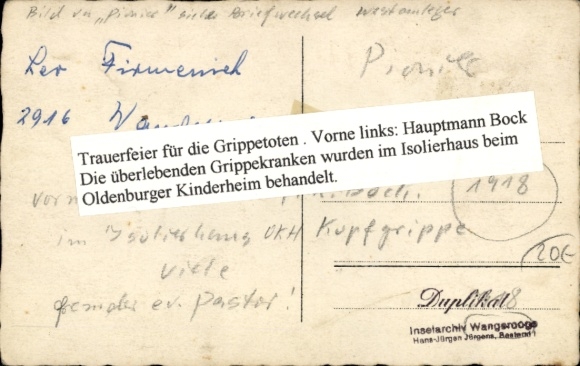 Bild von „Pionier" siehe Briefwechsel Westanleger
Leo Firmenich
2916
Pionier
Trauerfeier für die Grippetoten . Vorne links: Hauptmann Bock
Die überlebenden Grippekranken wurden im Isolierhaus beim
Oldenburger Kinderheim behandelt.
1918
im Isolierhaus OKH Kopfgrippe
viele
20€
fremder ev. Pastor!
Duplikat 8
Inselarchiv Wangerooge
Hans-Jürgen Jürgens, Bestand 1